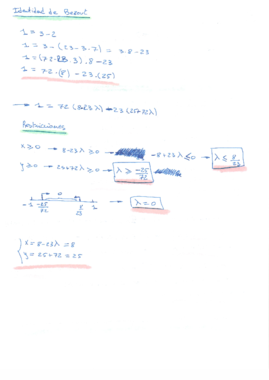 Identidad de Bezout
1 = 3-2
1 = 3-(23-3·7) = 3·8-23
1 = (72-23·3)·8-23
1 = 72·(8)-23·(25)
→ 1 = 72(8-23λ)-23(25-72λ)
Restricciones
x≥0 → 8-23λ≥0 → -8+23λ≤0 → λ≤ 8/23
y≥0 → 25+72λ≥0 → λ≥ -25/72
-1 -25/72 0 8/23 1 → λ=0
x=8-23λ=8
y=25+72=25